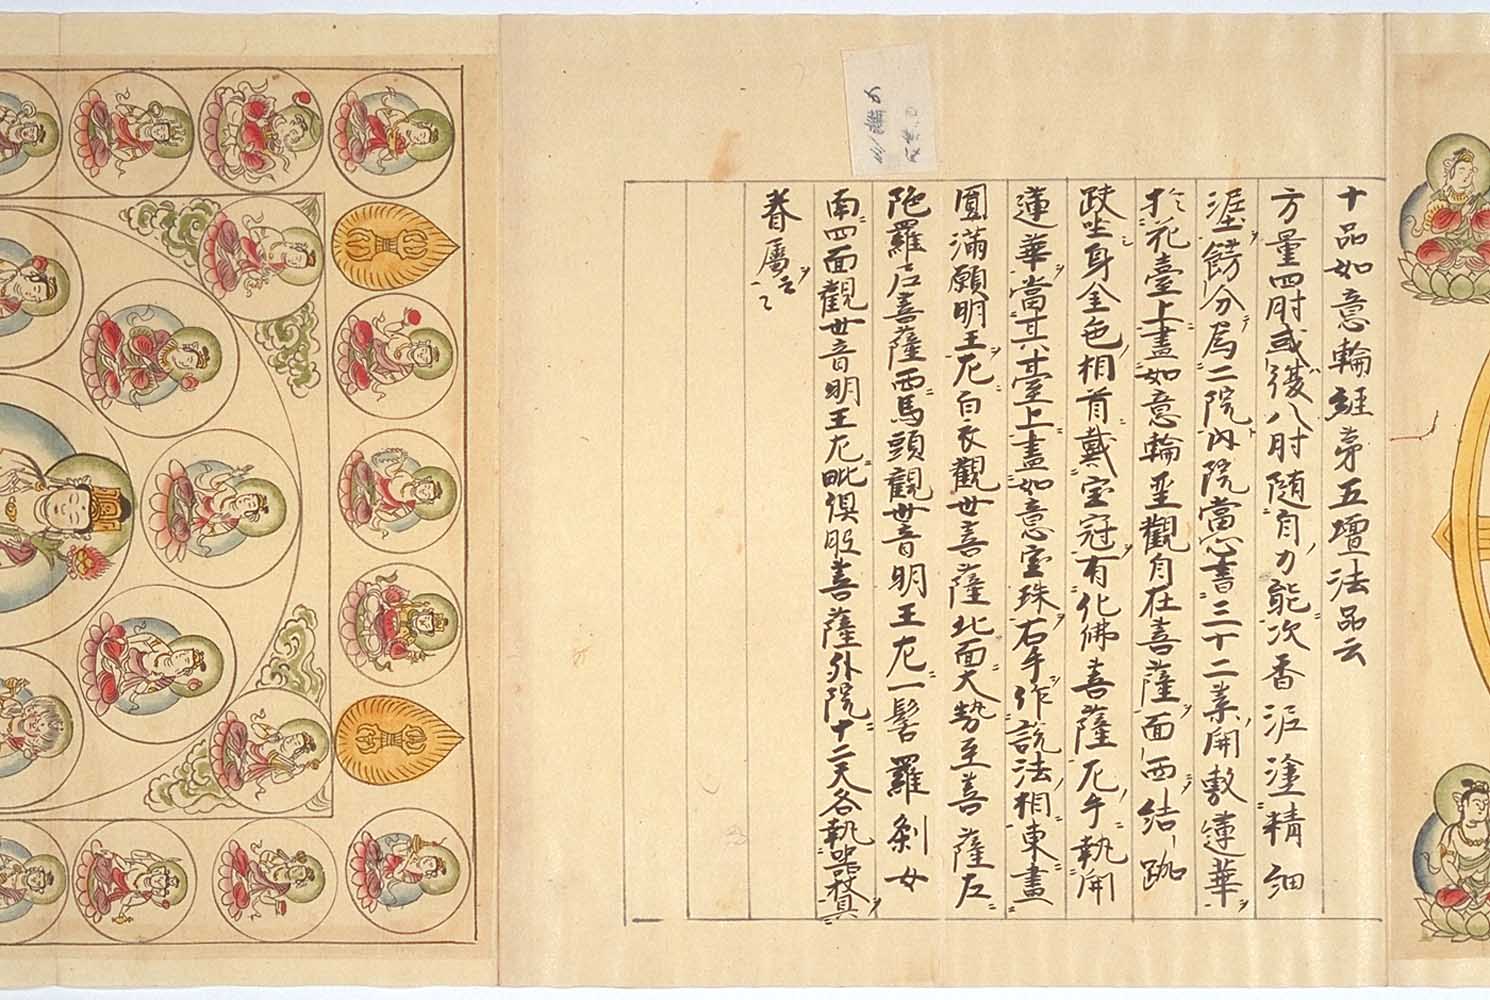 十品如意輪経第五壇法品云
方量四肘或復八肘随自力能次香泥塗精細
泥塗餝分為二院内院當心書三十二葉開敷蓮華
於花臺上畫如意輪聖觀自在菩薩面西結跏
趺坐身金色相首戴宝冠有化佛菩薩左手執開
蓮華當其華臺上畫如意宝珠右手作説法相東畫
圓滿願明王左白衣觀世菩薩北面大勢至菩薩左
陁羅菩薩西馬頭觀世音明王左一髻羅刹女
南四面觀世音明王左毗倶胝菩薩外院十二天各執器杖具
眷屬云々